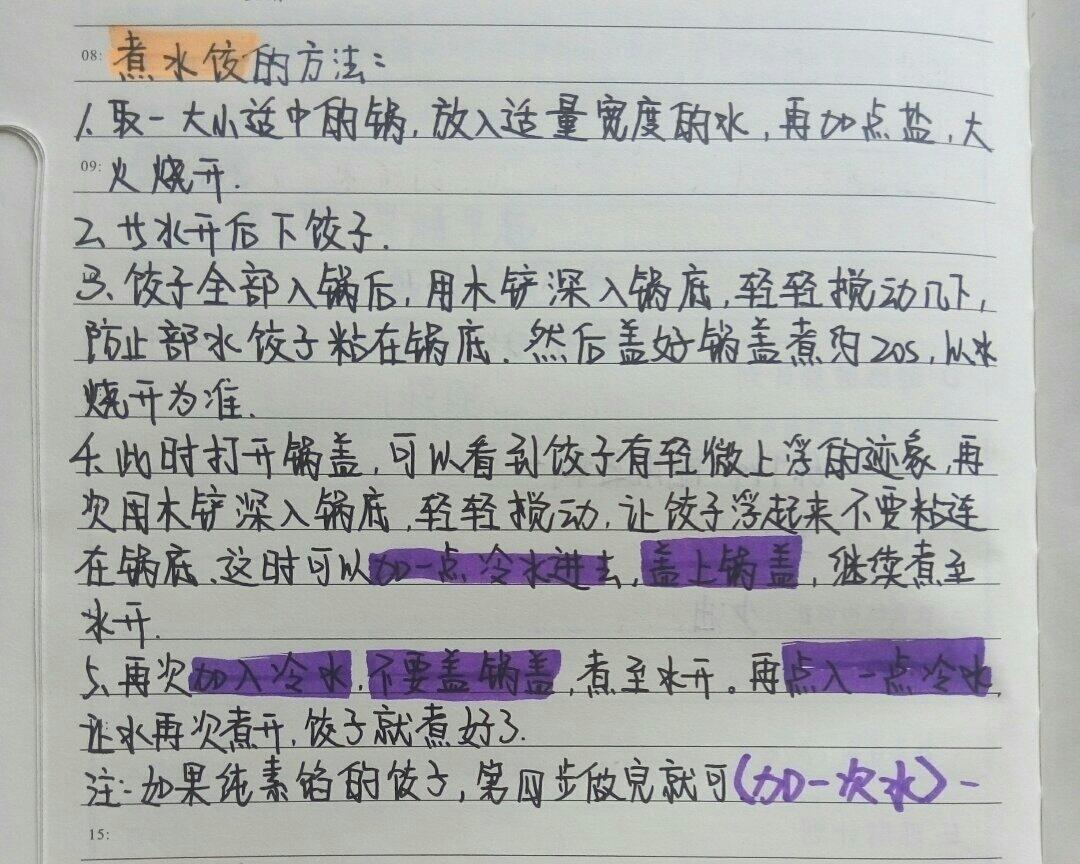 08: 煮水饺的方法:
1、取一大小适中的锅,放入适量宽度的水,再加点盐,大
09: 火烧开.
2、等水开后下饺子.
3、饺子全部入锅后,用木铲深入锅底,轻轻搅动几下,
防止部水饺子粘在锅底.然后盖好锅盖煮约20s,以水
烧开为准.
4、此时打开锅盖,可以看到饺子有轻微上浮的迹象,再
次用木铲深入锅底,轻轻搅动,让饺子浮起来不要粘连
在锅底.这时可以加一点冷水进去,盖上锅盖,继续煮至
水开.
5、再次加入冷水,不要盖锅盖,煮至水开。再点入一点冷水,
让水再次煮开,饺子就煮好了.
注:如果纯素馅的饺子,第四步做完就可(加一次水)-
15: